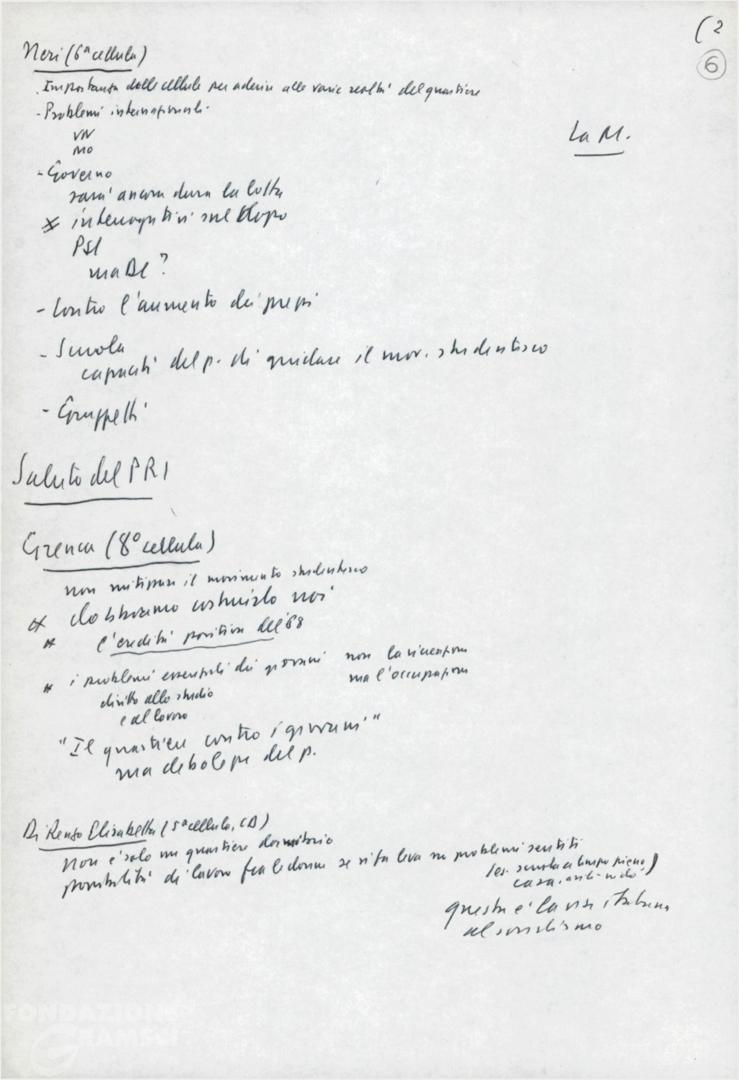 (2
6
Neri (6ª cellula)
. Importanza delle cellule per aderire alle varie realtà del quartiere
- Problemi internazionali
VN
MO
La M.
- Governo
sarà ancora dura la lotta
* interrogativi sul dopo
PSI
ma DC?
- Contro l'aumento dei prezzi
- Scuola
capacità del p. di guidare il mov. studentesco
- Gruppetti
Saluto del PRI
Grenca (8ª cellula)
non mitizzare il movimento studentesco
* dobbiamo costruirlo noi
* l'eredità positiva del '68
* i problemi essenziali dei giovani non la ricreazione
diritto allo studio ma l'occupazione
e al lavoro
"Il quartiere contro i giovani"
ma debolezze del p.
Di Renzo Elisabetta (5ª cellula, CD)
Non è solo un quartiere dormitorio
possibilità di lavoro fra le donne se si fa leva su problemi sentiti
(es. scuola a tempo pieno,
casa, asili-nido)
questa è la via italiana
al socialismo
FONDAZIONE
GRAMSCI